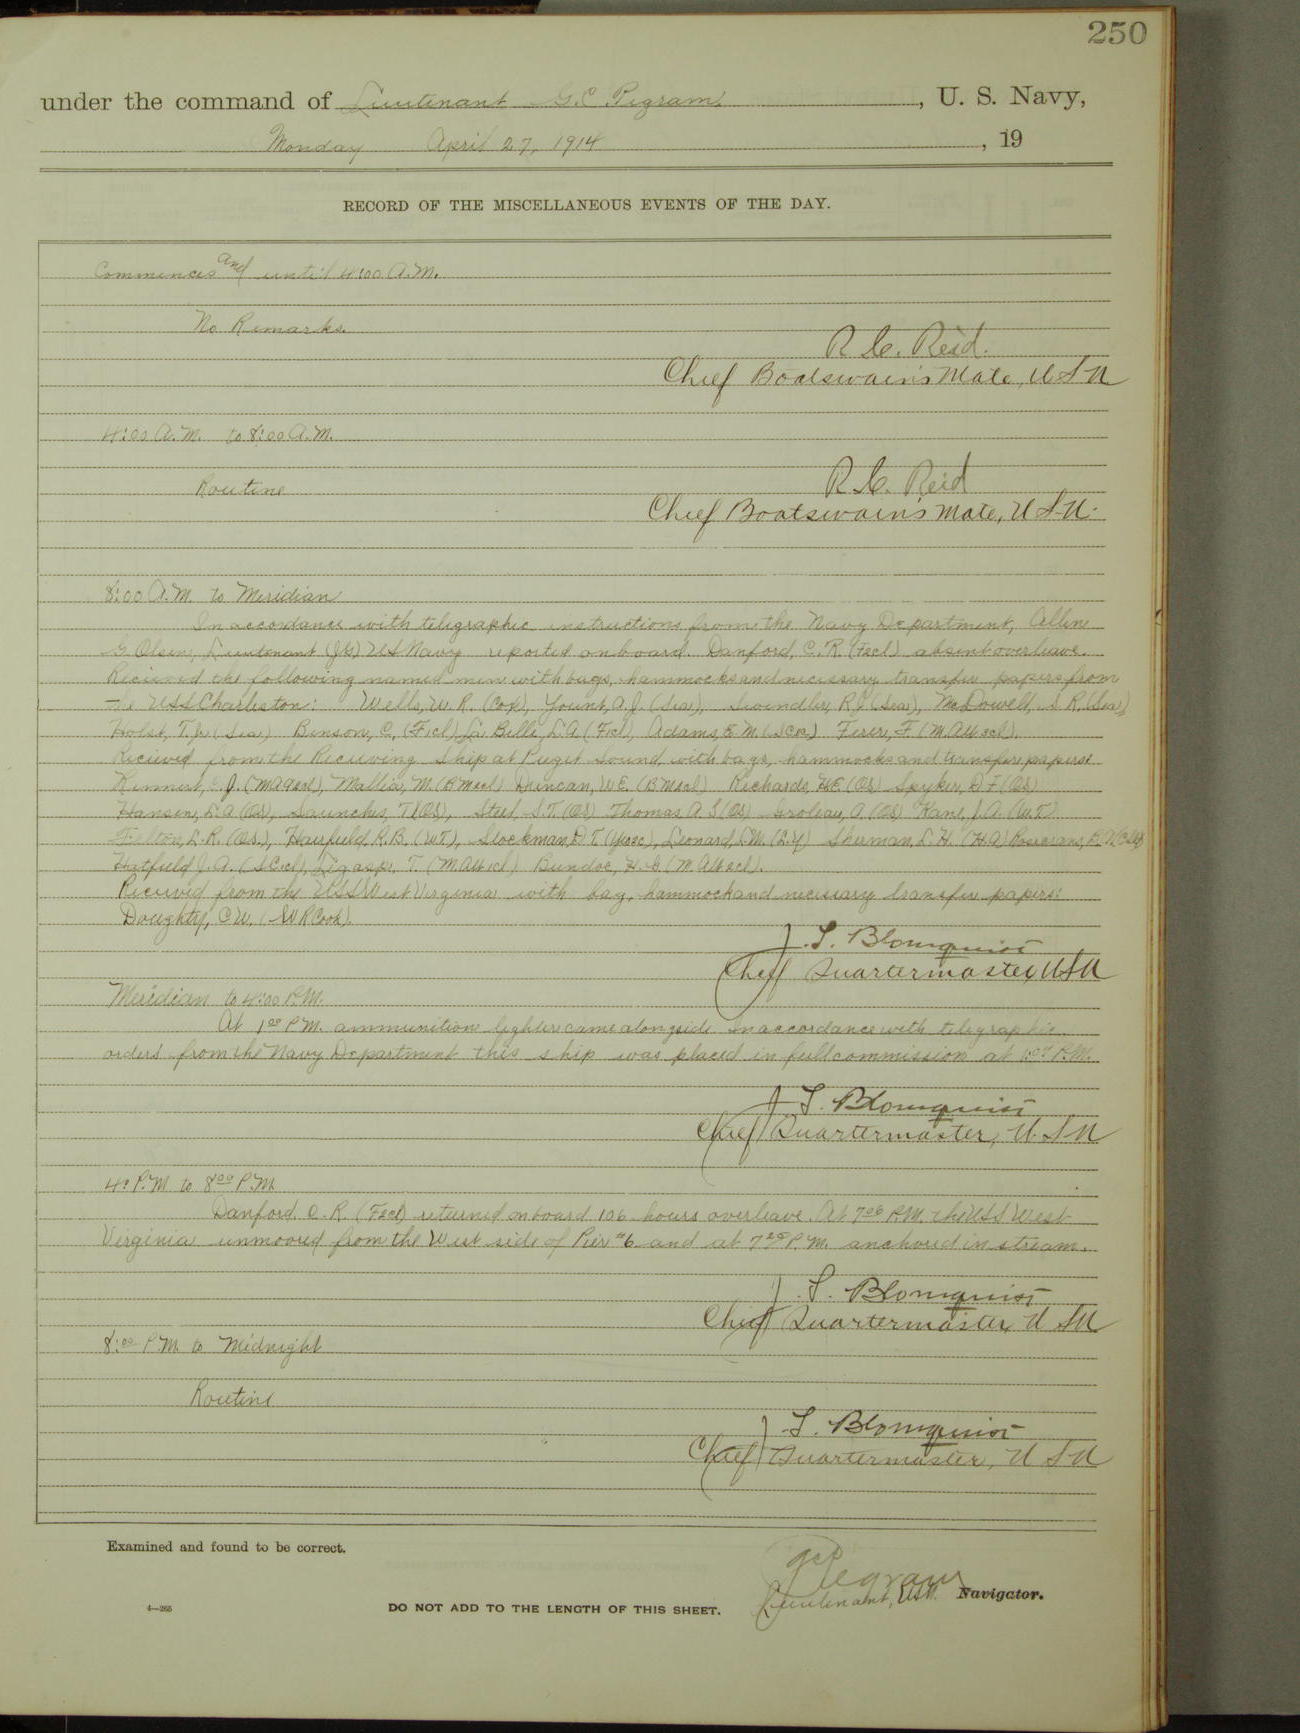 250
under the command of Lieutenant G.C. Pegram, U. S. Navy,
Monday April 27, 1914 , 19
RECORD OF THE MISCELLANEOUS EVENTS OF THE DAY.
Commences and until 4:00 A.M.
No Remarks.
R. C. Reid.
Chief Boatswain's Mate, U S N
4:00 A.M. to 8:00 A.M.
Routine
R. C. Reid
Chief Boatswain's Mate, U S N.
8:00 A.M. to Meridian
In accordance with telegraphic instructions from the Navy Department, Allen
G. Olsen, Lieutenant (JG) US Navy reported onboard. Danford, C. R. (F2cl) absent overleave.
Recieved the following named men with bags, hammocks and necessary transfer papers from
the USS Charleston: Wells, W. R. (Cox), Yount, A. J. (Sea), Swindler, R. J. (Sea), McDowell, S. R. (Sea),
Holst, T. Jr (Sea) Benson, C. (F1cl), La Belle, L. A. (F1cl), Adams, E. M. (SCk) Ferer, F (M.Att 3cl).
Recieved from the Recieving Ship at Puget Sound, with bags, hammocks and transfer papers:
J. Mallia, M. (BM2cl) Duncan, W. E. (BM2cl) Richards, H.E. (OS) Spyker, D. F (OS)
Hansen, L. A (OS), T (OS), Steel, S. T. (OS) Thomas A. S (OS) Groleau, A. (OS) Kane, J. A. (W.T.)
L. R. (OS.), R. B. (WT), Stockman, D T. Leonard, (L.Y) Sherman, L. H. (H.A) Rosecrans,
Hatfield J. A. (SC1cl), T. (M.Att 1cl) Bundoc, H. G (M.Att 2cl).
Recieved from the USS West Virginia with bag, hammock and necessary transfer papers:
Doughty, C W, (W R Cook).
J. S. Blomquist
Chief Quartermaster, U S N
Meridian to 4:00 P.M.
At 1:00 P.M. ammunition lighter came alongside In accordance with telegraphic
orders from the Navy Department this ship was placed in full commission at P.M.
J. S. Blomquist
Chief Quartermaster, U. S. N
4:00 P.M. to 8:00 P.M.
Danford C. R. (F2cl) returned onboard 106 hours overleave. At 7:06 P.M. the USS West
Virginia unmoored from the West side of Pier #6 and at 7:20 P.M. anchored in stream.
J. S. Blomquist
Chief Quartermaster U S N
8:00 P.M. to Midnight
Routine
J. S. Blomquist
Chief Quartermaster, U S N
Examined and found to be correct.
G C Pegram
Lieutenant, USN. Navigator.
4—265
DO NOT ADD TO THE LENGTH OF THIS SHEET.